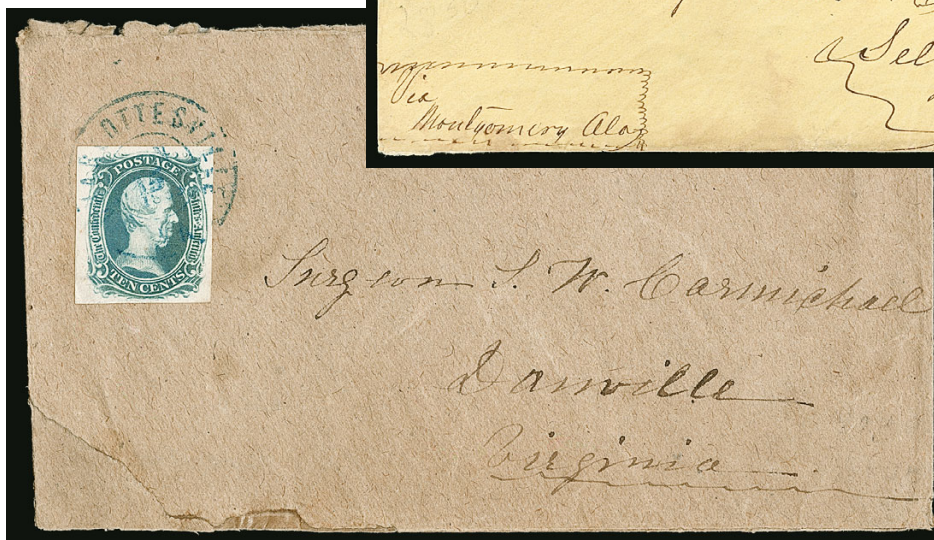 Sel
Via
Montgomery Ala
OTTESVILLE
POSTAGE
The Confederate States America
TEN CENTS
Surgeon S. W. Carmichael
Danville
Virginia